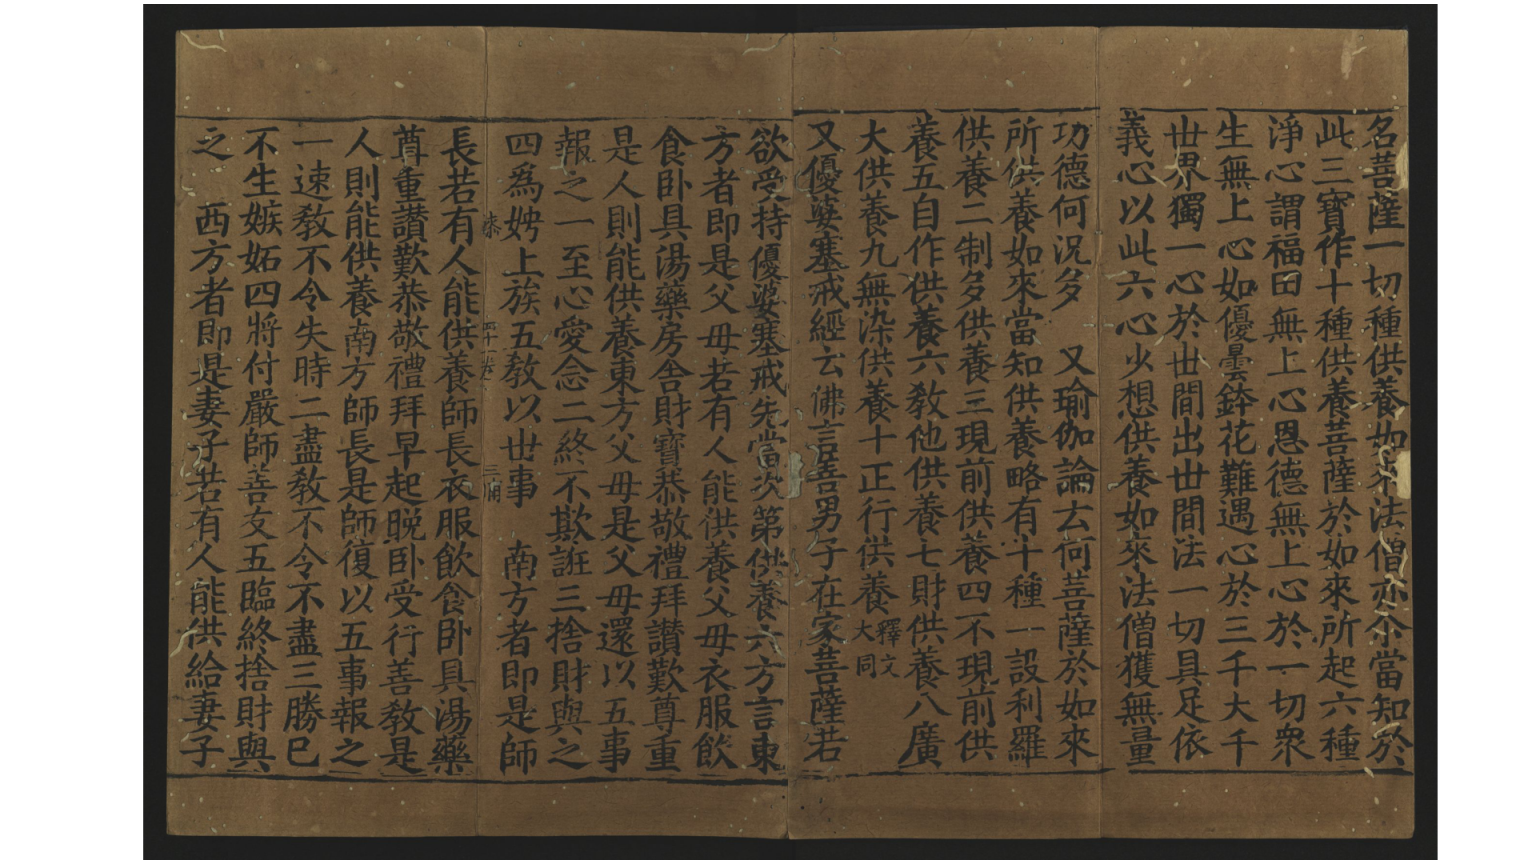 名菩薩一切種供養如來法僧亦尒當知於
此三寶作十種供養菩薩於如來所起六種
淨心謂福田無上心恩德無上心於一切衆
生無上心如優曇鉢花難遇心於三千大千
世界獨一心於世間出世間法一切具足依
義心以此六心少想供養如來法僧獲無量
功德何況多　又瑜伽論云何菩薩於如來
所供養如來當知供養略有十種一設利羅
供養二制多供養三現前供養四不現前供
養五自作供養六教他供養七財供養八廣
大供養九無染供養十正行供養釋文大同
又優婆塞戒經云佛言善男子在家菩薩若
欲受持優婆塞戒先當次第供養六方言東
方者即是父母若有人能供養父母衣服飲
食卧具湯藥房舍財寶恭敬禮拜讃歎尊重
是人則能供養東方父母是父母還以五事
報之一至心愛念二終不欺誑三捨財與之
四爲娉上族五教以世事　南方者即是師
長若有人能供養師長衣服飲食卧具湯藥
尊重讃歎恭敬禮拜早起晚卧受行善教是
人則能供養南方師長是師復以五事報之
一速教不令失時二盡教不令不盡三勝已
不生嫉妬四將付嚴師善友五臨終捨財與
之　西方者即是妻子若有人能供給妻子